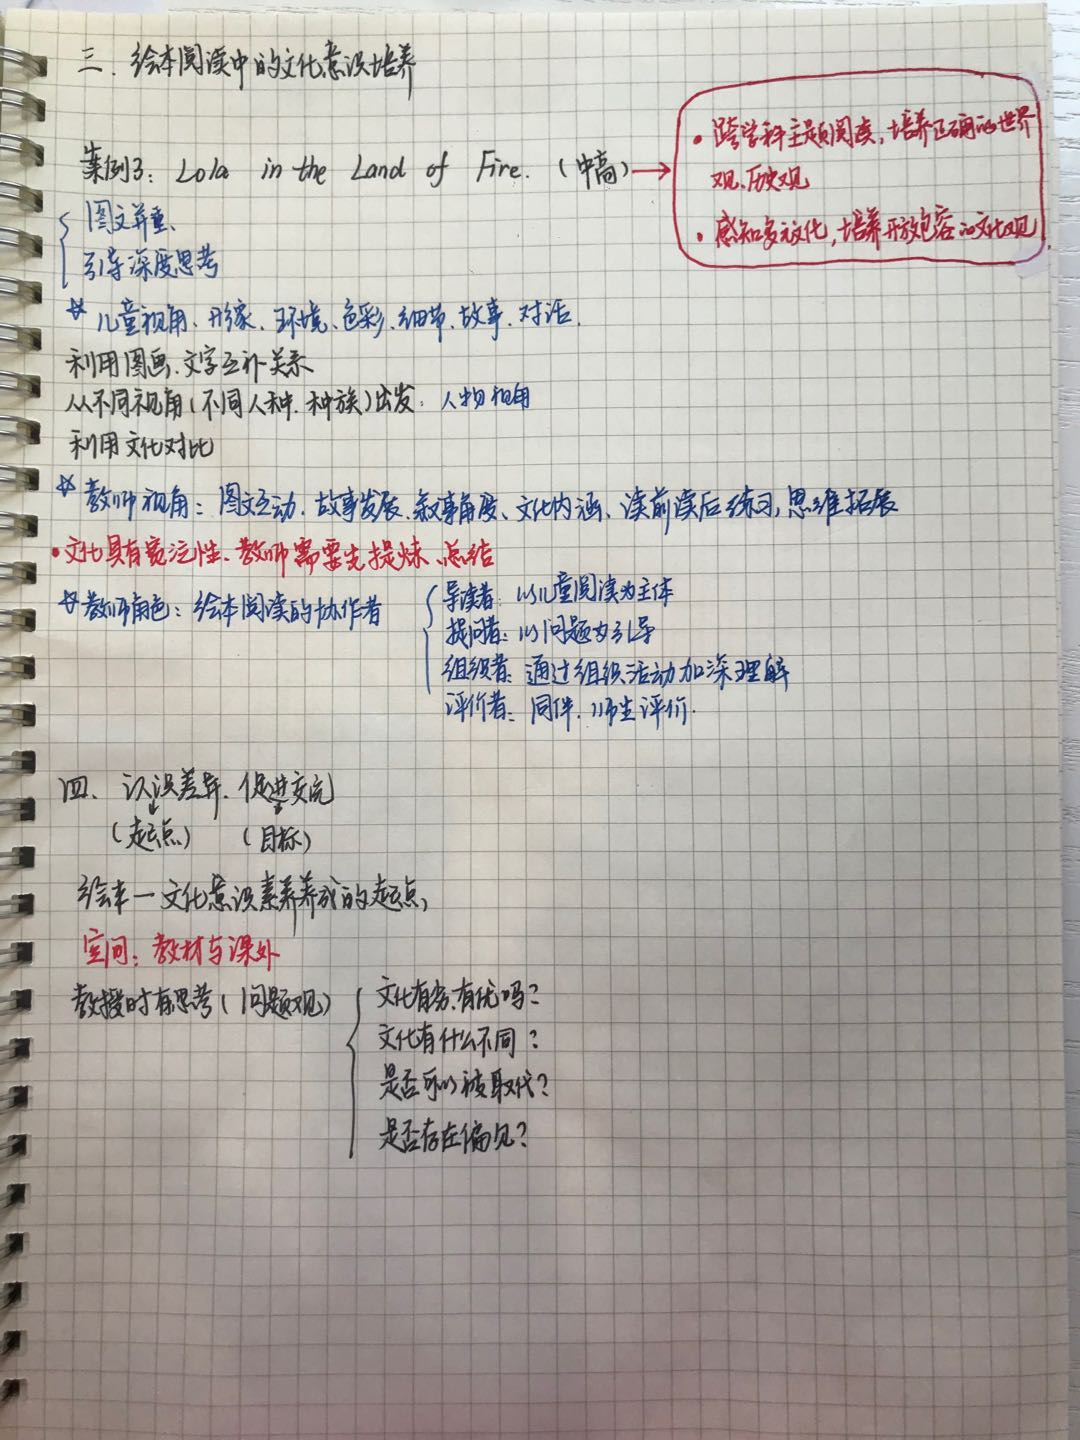 三、绘本阅读中的文化意识培养
案例3: Lola in the Land of Fire. (中高) →
• 跨学科主题阅读, 培养正确的世界
观、历史观
• 感知多元文化, 培养开放包容的文化观
图文并重、
引导深度思考
☆ 儿童视角、形象、环境、色彩、细节、故事、对话.
利用图画、文字互补关系
从不同视角(不同人种、种族)出发: 人物视角
利用文化对比
☆ 教师视角: 图文互动、故事发展、叙事角度、文化内涵、读前读后练习, 思维拓展
• 文化具有宽泛性、教师需要先提炼、总结
☆ 教师角色: 绘本阅读的协作者
导读者: 以儿童阅读为主体
提问者: 以问题为引导
组织者: 通过组织活动加深理解
评价者: 同伴、师生评价.
四、认识差异、促进交流
(起点) (目标)
绘本一文化意识素养养成的起点,
空间: 教材与课外
教授时有思考(问题观)
文化有劣、有优吗?
文化有什么不同?
是否可以被取代?
是否存在偏见?